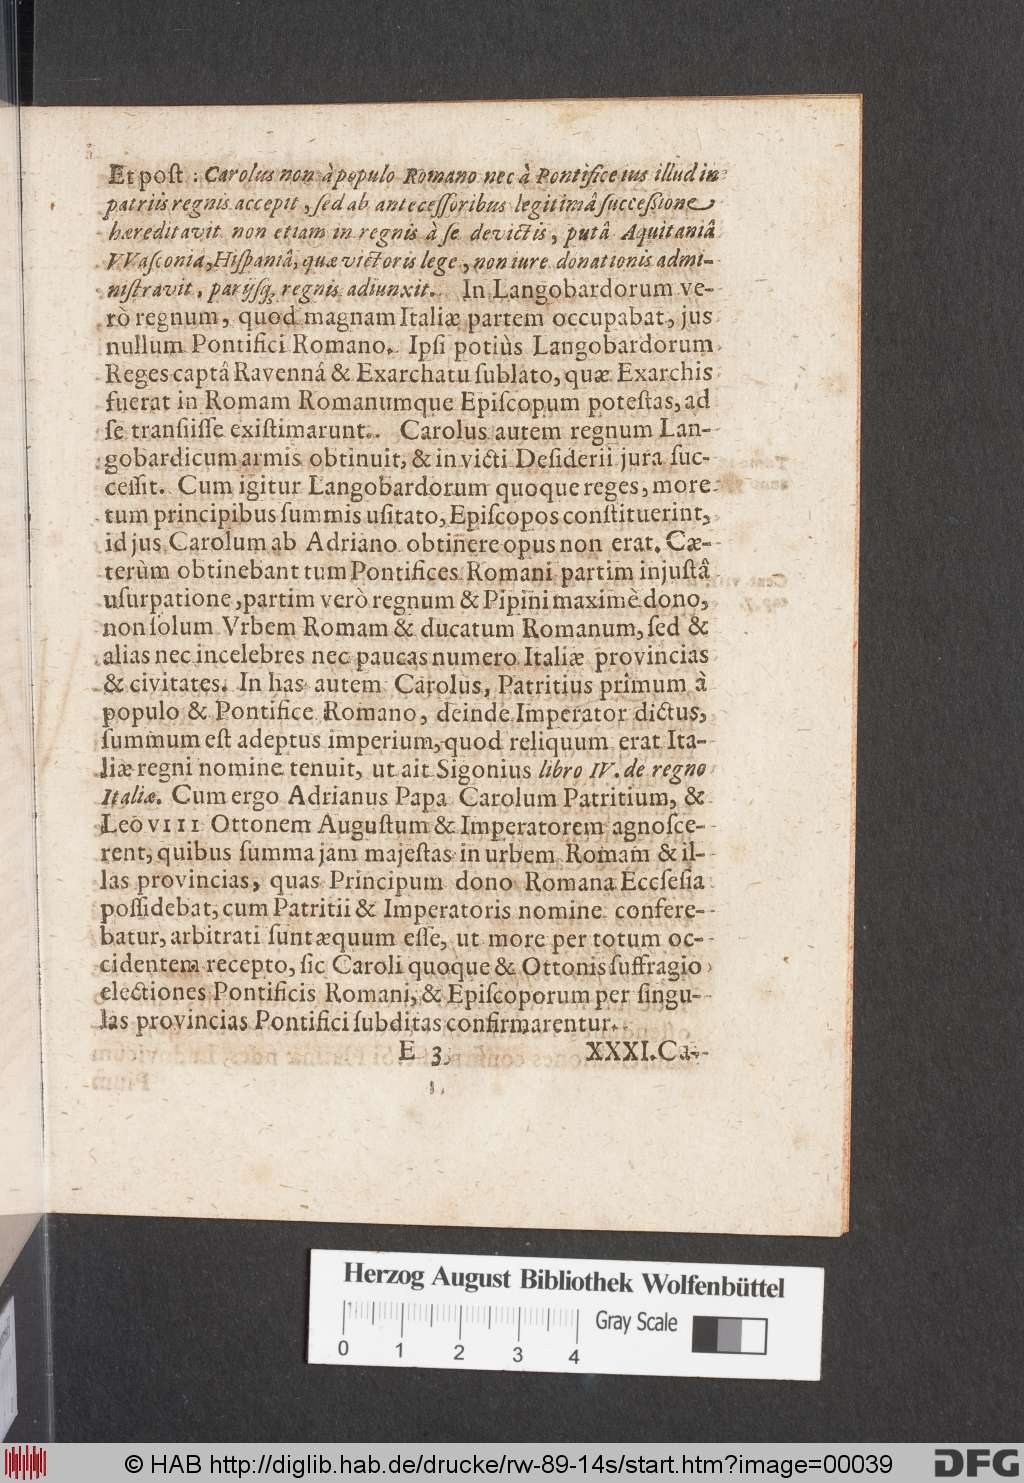 Et poſt : Carolus non à populo Romano nec à Pontifice ius illud in
patriis regnis accepit, ſed ab anteceſſoribus legitimâ ſucceſsione
hæreditavit non etiam in regnis à ſe devictis, putâ Aquitaniâ
VVaſconia, Hiſpaniâ, quæ victoris lege, non iure donationis admi-
niſtravit, parijſq; regnis adiunxit. In Langobardorum ve-
rò regnum, quod magnam Italiæ partem occupabat, jus
nullum Pontifici Romano. Ipſi potiùs Langobardorum
Reges captâ Ravennâ & Exarchatu ſublato, quæ Exarchis
fuerat in Romam Romanumque Epiſcopum poteſtas, ad
ſe tranſiiſſe exiſtimarunt. Carolus autem regnum Lan-
gobardicum armis obtinuit, & in victi Deſiderii jura ſuc-
ceſſit. Cum igitur Langobardorum quoque reges, more
tum principibus ſummis uſitato, Epiſcopos conſtituerint,
id jus Carolum ab Adriano obtinere opus non erat. Cæ-
terùm obtinebant tum Pontifices Romani partim injuſtâ
uſurpatione, partim verò regnum & Pipini maximè dono,
non ſolum Vrbem Romam & ducatum Romanum, ſed &
alias nec incelebres nec paucas numero Italiæ provincias
& civitates. In has autem Carolus, Patritius primum à
populo & Pontifice Romano, deinde Imperator dictus,
ſummum eſt adeptus imperium, quod reliquum erat Ita-
liæ regni nomine tenuit, ut ait Sigonius libro IV. de regno
Italiæ. Cum ergo Adrianus Papa Carolum Patritium, &
Leo VIII Ottonem Auguſtum & Imperatorem agnoſce-
rent, quibus ſumma jam majeſtas in urbem Romam & il-
las provincias, quas Principum dono Romana Eccſeſia
poſſidebat, cum Patritii & Imperatoris nomine confere-
batur, arbitrati ſunt æquum eſſe, ut more per totum oc-
cidentem recepto, ſic Caroli quoque & Ottonis ſuffragio
electiones Pontificis Romani, & Epiſcoporum per ſingu-
las provincias Pontifici ſubditas confirmarentur.
E 3 XXXI. Ca-
Herzog August Bibliothek Wolfenbüttel
0 1 2 3 4 Gray Scale
© HAB http://diglib.hab.de/drucke/rw-89-14s/start.htm?image=00039 DFG